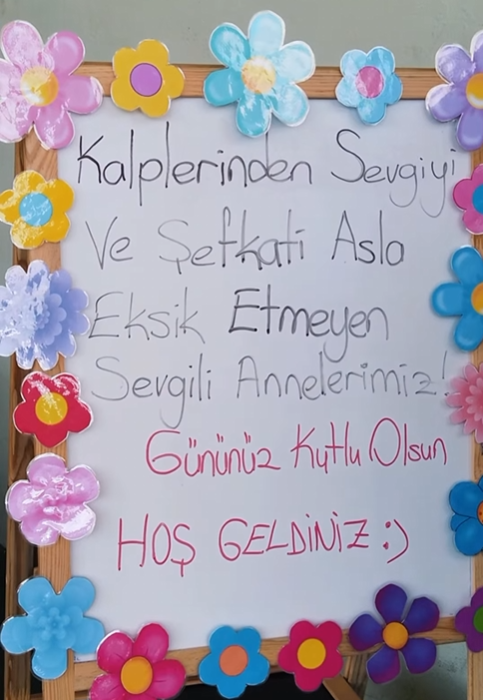 Kalplerinden Sevgiyi
Ve Şefkati Asla
Eksik Etmeyen
Sevgili Annelerimiz!
Gününüz Kutlu Olsun
HOŞ GELDİNİZ :)